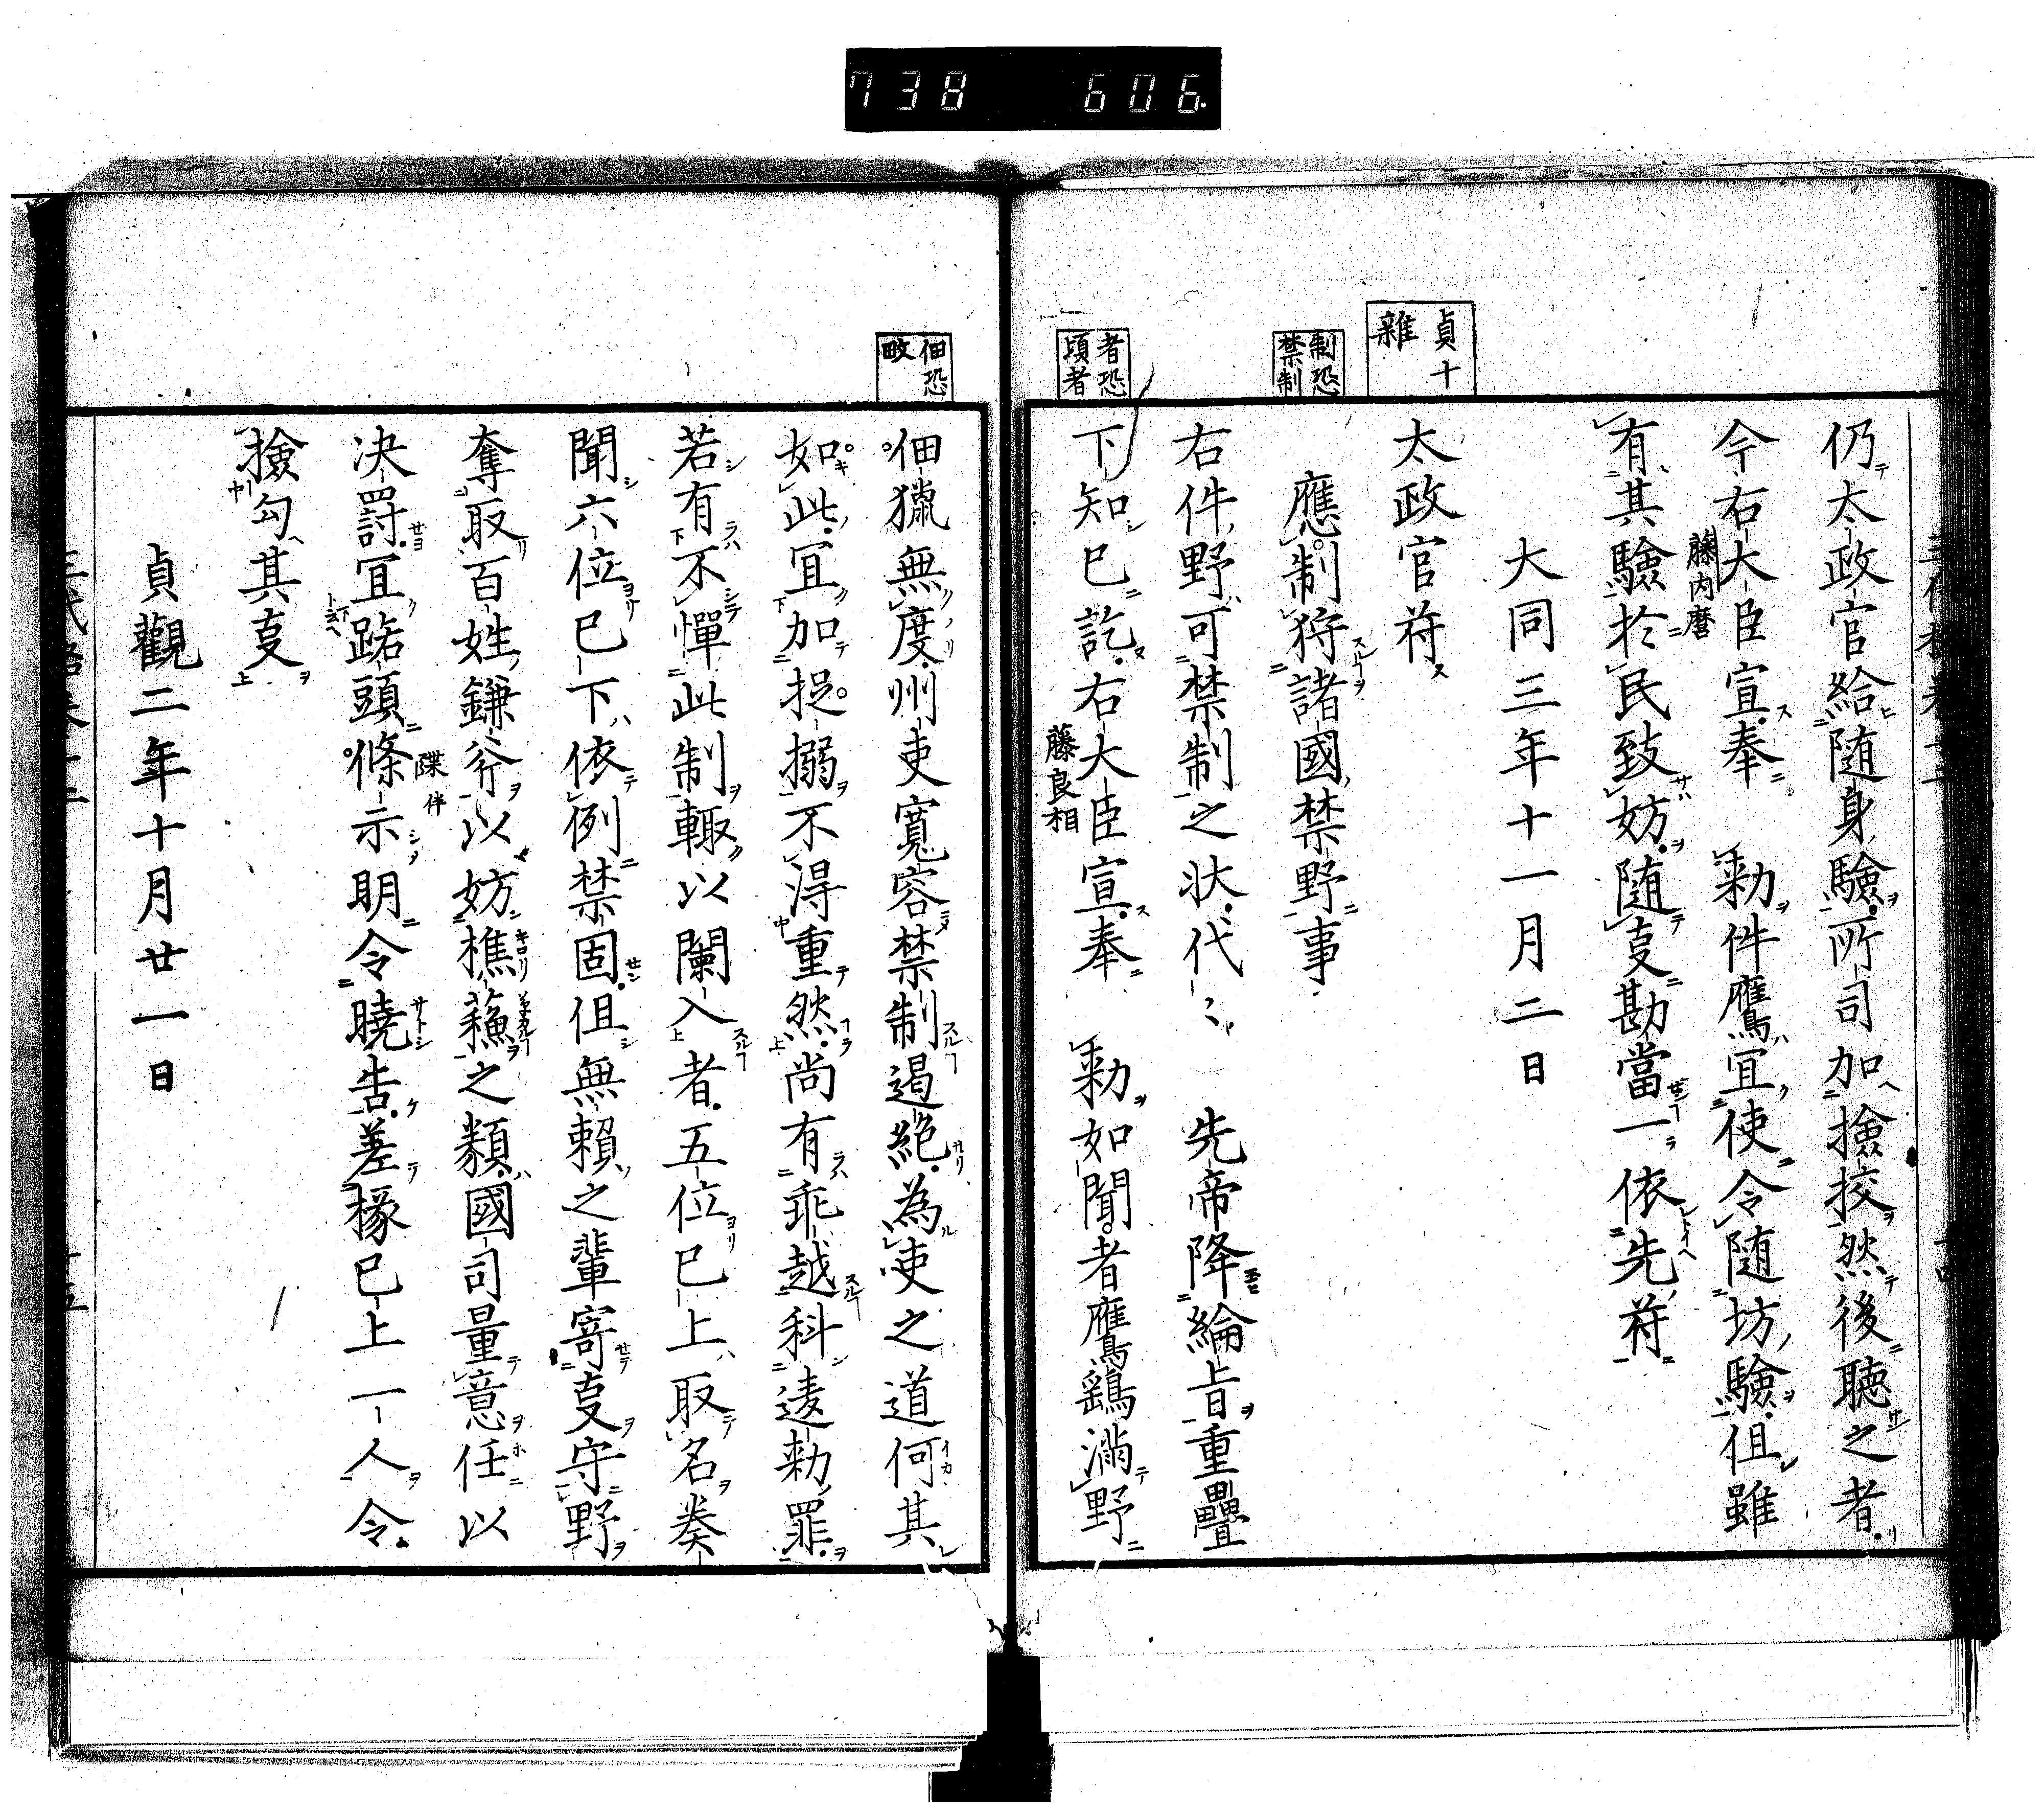 738 606
貞十
雜
制恐
禁制
者恐
頃者
仍太政官給随身驗所司加撿挍然後聴之者
今右大臣宣奉 勅件鷹冝使令随坊驗但雖
藤内麿
有其驗於民致妨随㕝勘當一依先符
大同三年十一月二日
太政官符
應制狩諸國禁野事
右件野可禁制之状代〻 先帝降綸旨重疊
下知已訖右大臣宣奉 勅如聞者鷹鷂満野
藤良相
佃恐
畋
佃獵無度州吏寬容禁制遏絶為吏之道何其
如此冝加捉搦不得重然尚有乖越科違勅罪
若有不憚此制輙以闌入者五位已上取名奏
聞六位已下依例禁固但無頼之輩寄㕝守野
奪取百姓鎌斧以妨樵蘓之類國司量意任以
决罸冝踣頭條示明令曉告差掾已上一人令
牒伴
撿勾其㕝
貞觀二年十月廿一日